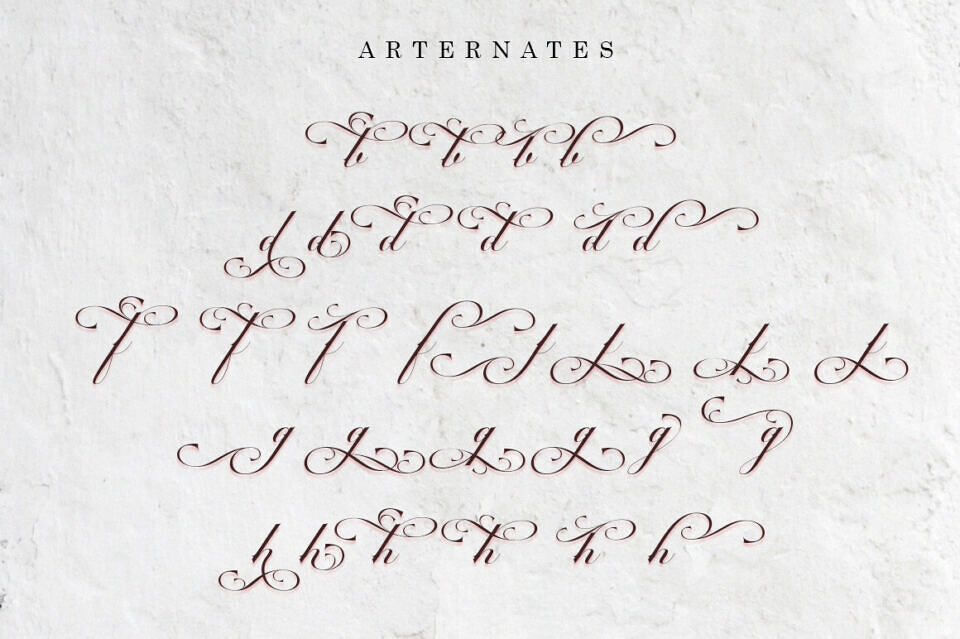 ARTERNATES
b b b b
d d d d d d
f f f f f f f f
g g g g g g
h h h h h h